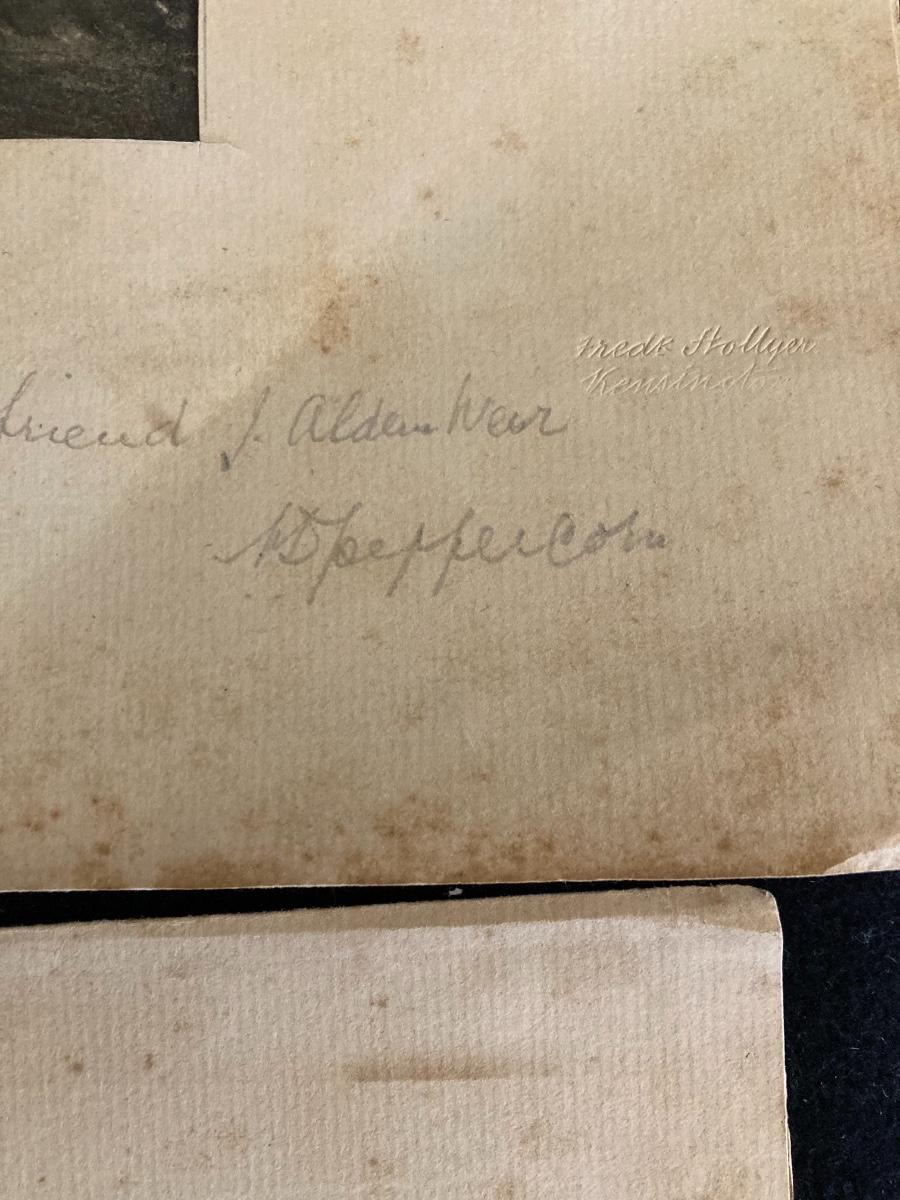 Fredk Hollyer
Kensington
friend J. Alden Weir
AD Peppercorn